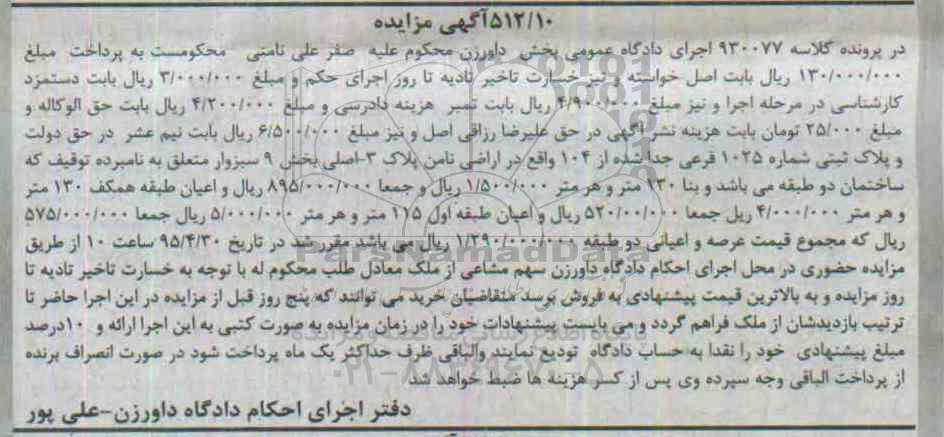 ۵۱۲/۱۰آگهی مزایده
در پرونده کلاسه ۹۳۰۰۷۷ اجرای دادگاه عمومی بخش داورزن محکوم علیه صفر علی نامنی محکومست به پرداخت مبلغ
۱۳۰/۰۰۰/۰۰۰ ریال بابت اصل خواسته و نیز خسارت تاخیر تادیه تا روز اجرای حکم و مبلغ ۳/۰۰۰/۰۰۰ ریال بابت دستمزد
کارشناسی در مرحله اجرا و نیز مبلغ ۴/۹۰۰/۰۰۰ ریال بابت تمبر هزینه دادرسی و مبلغ ۴/۲۰۰/۰۰۰ ریال بابت حق الوکاله و
مبلغ ۲۵/۰۰۰ تومان بابت هزینه نشر آگهی در حق علیرضا رزاقی اصل و نیز مبلغ ۶/۵۰۰/۰۰۰ ریال بابت نیم عشر در حق دولت
و پلاک ثبتی شماره ۱۰۲۵ فرعی جدا شده از ۱۰۴ واقع در اراضی نامن پلاک ۳-اصلی بخش ۹ سبزوار متعلق به نامبرده توقیف که
ساختمان دو طبقه می باشد و بنا ۱۳۰ متر و هر متر ۱/۵۰۰/۰۰۰ ریال و جمعا ۸۹۵/۰۰۰/۰۰۰ ریال و اعیان طبقه همکف ۱۳۰ متر
و هر متر ۴/۰۰۰/۰۰۰ ریل جمعا ۵۲۰/۰۰/۰۰۰ ریال و اعیان طبقه اول ۱۱۵ متر و هر متر ۵/۰۰۰/۰۰۰ ریال جمعا ۵۷۵/۰۰۰/۰۰۰
ریال که مجموع قیمت عرصه و اعیانی دو طبقه ۱/۲۹۰/۰۰۰/۰۰۰ ریال می باشد مقرر شد در تاریخ ۹۵/۴/۳۰ ساعت ۱۰ از طریق
مزایده حضوری در محل اجرای احکام دادگاه داورزن سهم مشاعی از ملک معادل طلب محکوم له با توجه به خسارت تاخیر تادیه تا
روز مزایده و به بالاترین قیمت پیشنهادی به فروش برسد متقاضیان خرید می توانند که پنج روز قبل از مزایده در این اجرا حاضر تا
ترتیب بازدیدشان از ملک فراهم گردد و می بایست پیشنهادات خود را در زمان مزایده به صورت کتبی به این اجرا ارائه و ۱۰درصد
مبلغ پیشنهادی خود را نقدا به حساب دادگاه تودیع نمایند والباقی ظرف حداکثر یک ماه پرداخت شود در صورت انصراف برنده
از پرداخت الباقی وجه سپرده وی پس از کسر هزینه ها ضبط خواهد شد
دفتر اجرای احکام دادگاه داورزن-علی پور
ParsNamadData